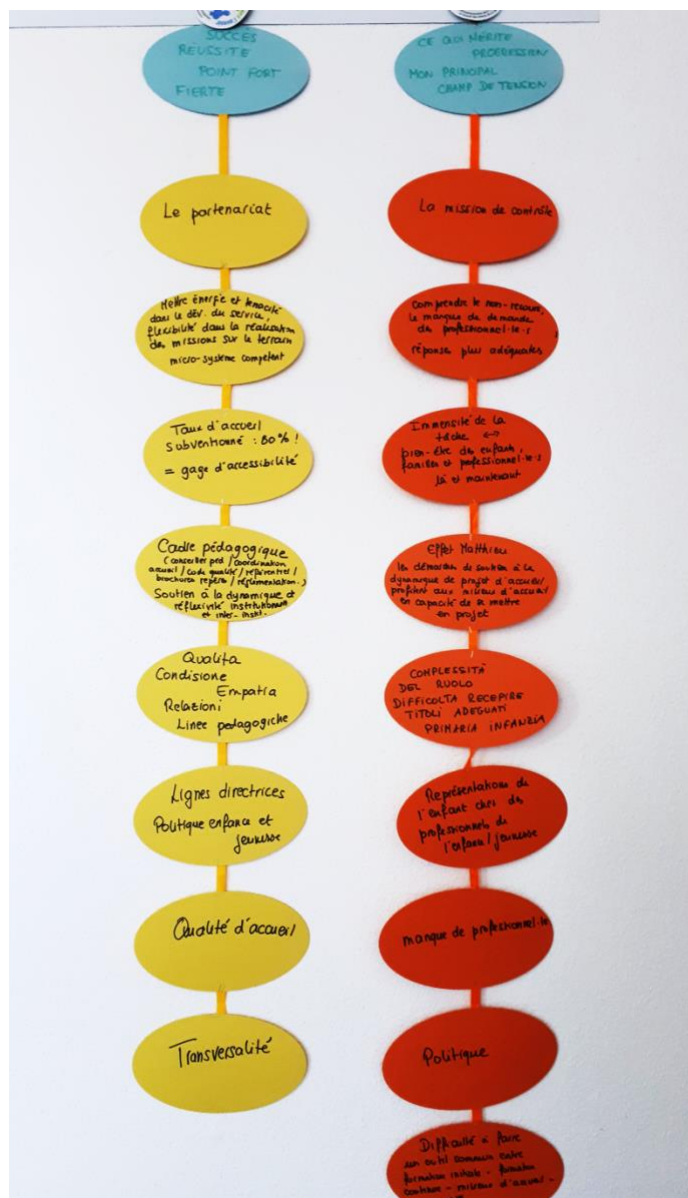 SUCCÈS
RÉUSSITE
POINT FORT
FIERTE
Le partenariat
Mettre énergie et tenacité
dans le dév. du service,
flexibilité dans la réalisation
des missions sur le terrain
micro-système compétent
Taux d'accueil
subventionné : 80% !
= gage d'accessibilité
Cadre pédagogique
(conseiller péd / coordination
accueil / code qualité / référentiel /
brochures repères / réglementation..)
Soutien à la dynamique et
réflexivité institutionnelle
et inter-instit.
Qualita
Condisione
Empatia
Relazioni
Linee pedagogiche
Lignes directrices
Politique enfance et
jeunesse
Qualité d'accueil
Transversalité
CE QUI MÉRITE
PROGRESSION
MON PRINCIPAL
CHAMP DE TENSION
La mission de contrôle
Comprendre le non-recours,
le manque de demande
des professionnel·le·s
réponses plus adéquates
Immensité de la
tâche ↔
bien-être des enfants,
familles et professionnel·le·s
là et maintenant
Effet Matthieu
les démarches de soutien à la
dynamique de projet d'accueil
profitent aux milieux d'accueil
en capacité de se mettre
en projet
COMPLESSITÀ
DEL RUOLO
DIFFICOLTA RECEPIRE
TITOLI ADEGUATI
PRIMARIA INFANZIA
Représentations de
l'enfant chez des
professionnels de
l'enfance/jeunesse
manque de professionnel·le
Politique
Difficulté à faire
un outil commun entre
formation initiale - formation
continue - milieux d'accueil -